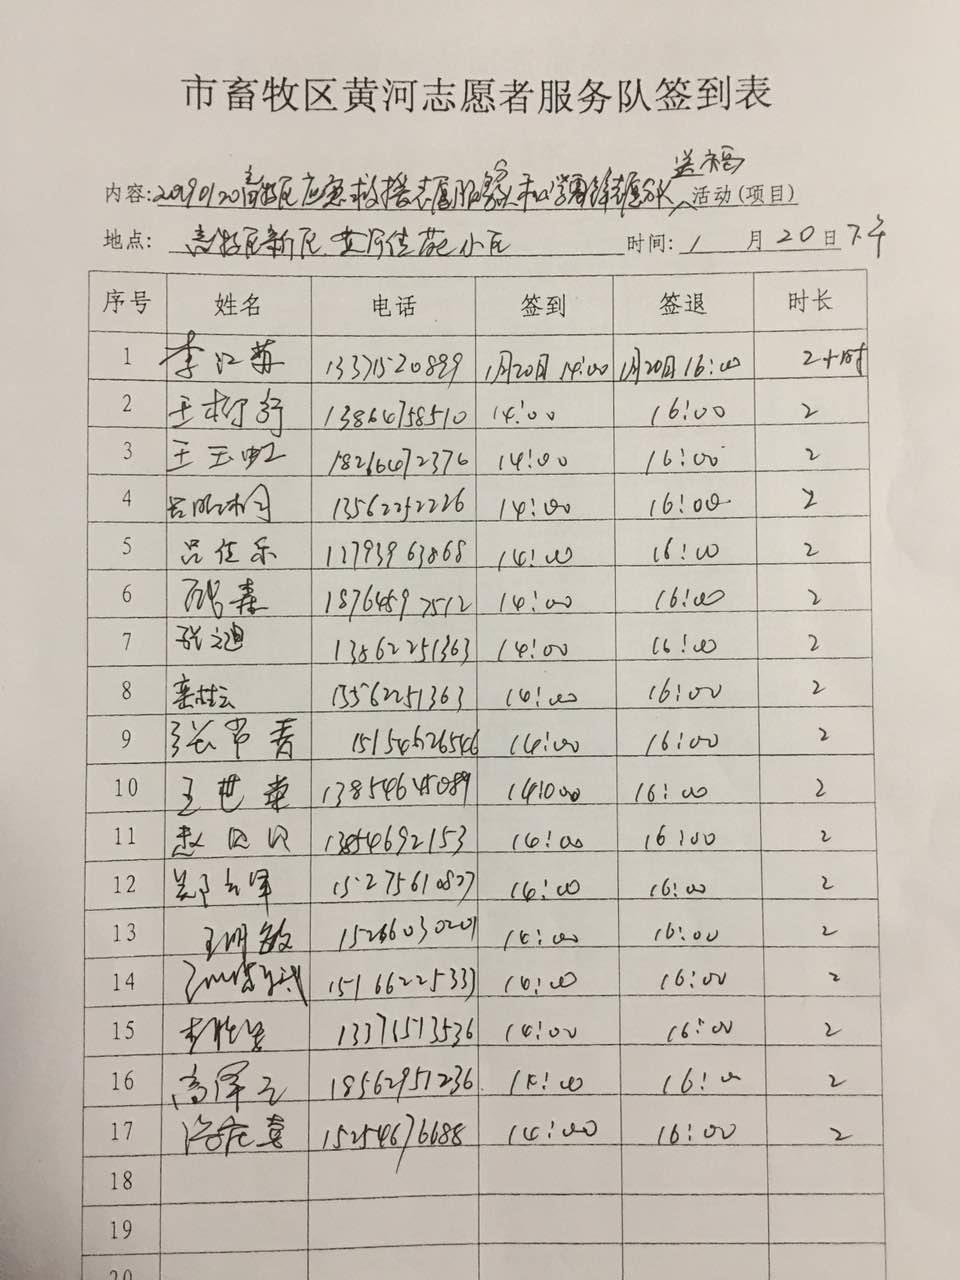 市畜牧区黄河志愿者服务队签到表
送福
内容:20190120 应急救援志愿服务队和 活动(项目)
地点: 小区 时间: 1 月 20 日 下午
序号 姓名 电话 签到 签退 时长
1 李江苏 13371520899 1月20日 14:00 1月20日 16:00 2小时
2 13864758510 14:00 16:00 2
3 王玉虹 18266472376 14:00 16:00 2
4 13562252226 14:00 16:00 2
5 吕佳乐 63868 14:00 16:00 2
6 18764897512 14:00 16:00 2
7 张文迪 13862251363 14:00 16:00 2
8 13562251363 14:00 16:00 2
9 张常青 15154626546 14:00 16:00 2
10 王世華 14:000 16:00 2
11 13854692153 14:00 16:00 2
12 15275610827 14:00 16:00 2
13 王明敏 15266030201 14:00 16:00 2
14 15166225333 14:00 16:00 2
15 13371513536 14:00 16:00 2
16 高泽云 18562951236 14:00 16:00 2
17 15254676688 14:00 16:00 2
18
19
20